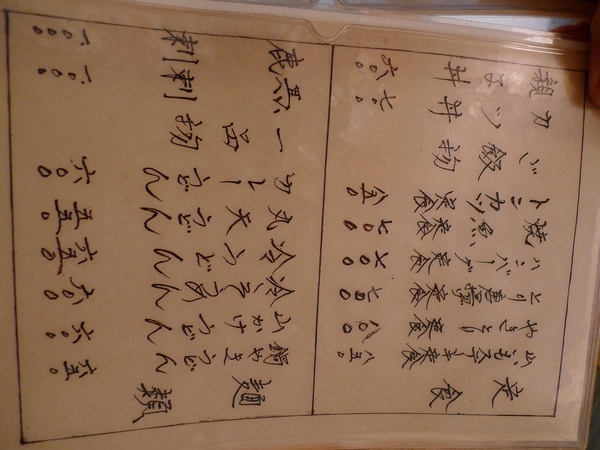 定食
山いもステーキ定食 八五〇
やきとり定食 八〇〇
とり唐揚定食 七〇〇
ハンバーグ定食 七〇〇
焼魚定食 七〇〇
トンカツ定食 八五〇
ご飯物
カツ丼 七〇〇
親子丼 六〇〇
麺類
鍋やきうどん 六五〇
山かけうどん 六〇〇
冷そうめん 六〇〇
冷うどん 六五〇
丸天うどん 五五〇
カレーうどん 六〇〇
一品物
馬刺 一〇〇〇
鹿刺 一〇〇〇